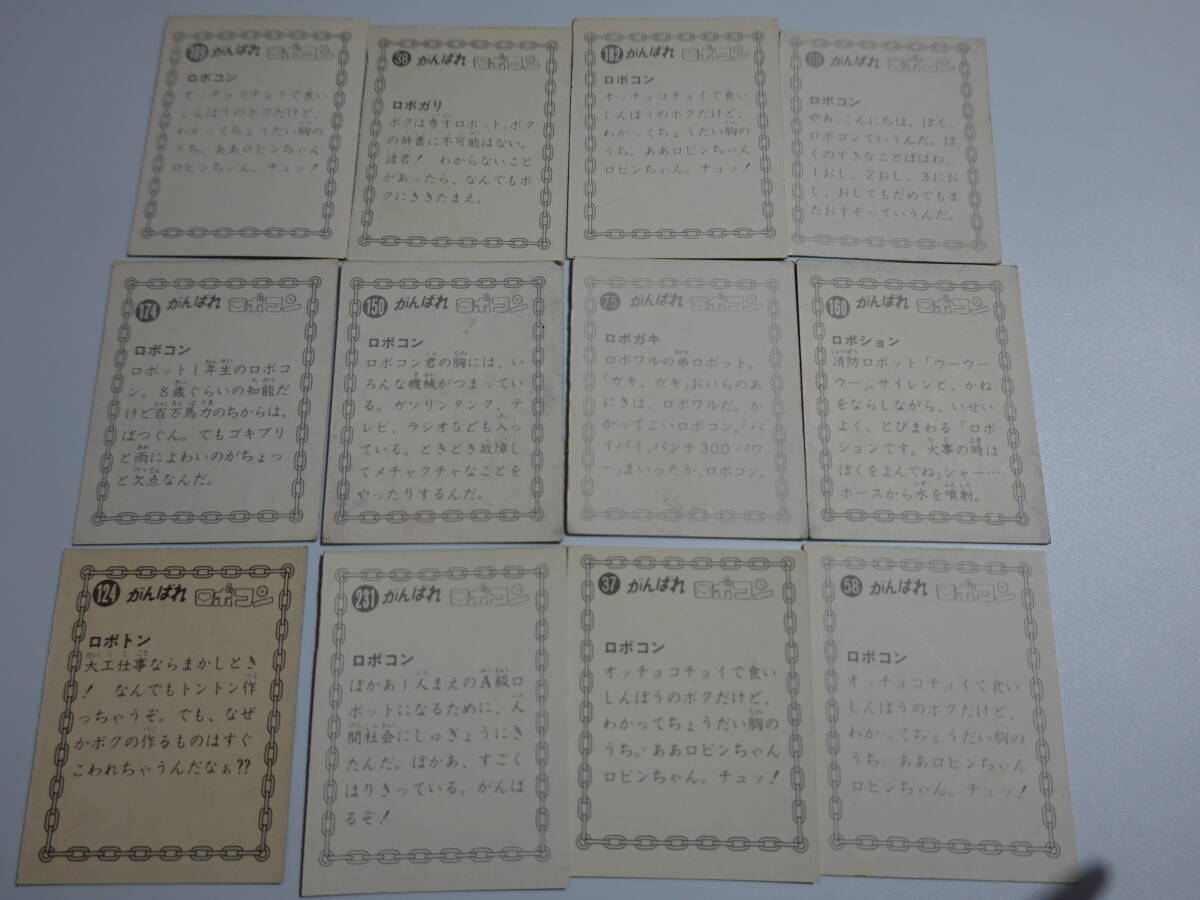 がんばれ ロボコン
ロボコン
オッチョコチョイで食い
しんぼうのボクだけど、
わかってちょうだい胸の
うち。ああロビンちゃん
ロビンちゃん。チュッ!
38 がんばれ ロボコン
ロボガリ
ボクは秀才ロボット。ボク
の辞書に不可能はない。
諸君! わからないこと
があったら、なんでもボ
クにききたまえ。
182 がんばれ ロボコン
ロボコン
オッチョコチョイで食い
しんぼうのボクだけど、
わかってちょうだい胸の
うち。ああロビンちゃん
ロビンちゃん。チュッ!
がんばれ ロボコン
ロボコン
やあ、こんにちは。ぼく、
ロボコンていうんだ。ぼ
くのすきなことばはね、
1おし、2おし、3にお
し、おしてもだめでもま
たおすぞっていうんだ。
174 がんばれ ロボコン
ロボコン
ロボット1年生のロボコ
ン。8歳ぐらいの知能だ
けど百万馬力のちからは、
ばつぐん。でもゴキブリ
と雨によわいのがちょっ
と欠点なんだ。
150 がんばれ ロボコン
ロボコン
ロボコン君の胸には、い
ろんな機械がつまってい
る。ガソリンタンク、テ
レビ、ラジオなども入っ
ている。ときどき故障し
てメチャクチャなことを
やったりするんだ。
75 がんばれ ロボコン
ロボガキ
ロボワルの弟ロボット。
「ガキ、ガキ」おいらのあ
にきは、ロボワルだ。か
かってこいロボコン。「バ
イバイ、パンチ300パワ
ー」まいったか、ロボコン。
160 がんばれ ロボコン
ロボション
消防ロボット「ウーウー
ウー」。サイレンと、かね
をならしながら、いせい
よく、とびまわる「ロボ
ションです。火事の時は
ぼくをよんでね」シャー…
ホースから水を噴射。
124 がんばれ ロボコン
ロボトン
大工仕事ならまかしとき
! なんでもトントン作
っちゃうぞ。でも、なぜ
かボクの作るものはすぐ
こわれちゃうんだなぁ??
231 がんばれ ロボコン
ロボコン
ぼかあ1人まえのA級ロ
ボットになるために、人
間社会にしゅぎょうにき
たんだ。ぼかあ、すごく
はりきっている。がんば
るぞ!
37 がんばれ ロボコン
ロボコン
オッチョコチョイで食い
しんぼうのボクだけど、
わかってちょうだい胸の
うち。ああロビンちゃん
ロビンちゃん。チュッ!
58 がんばれ ロボコン
ロボコン
オッチョコチョイで食い
しんぼうのボクだけど、
わかってちょうだい胸の
うち。ああロビンちゃん
ロビンちゃん。チュッ!